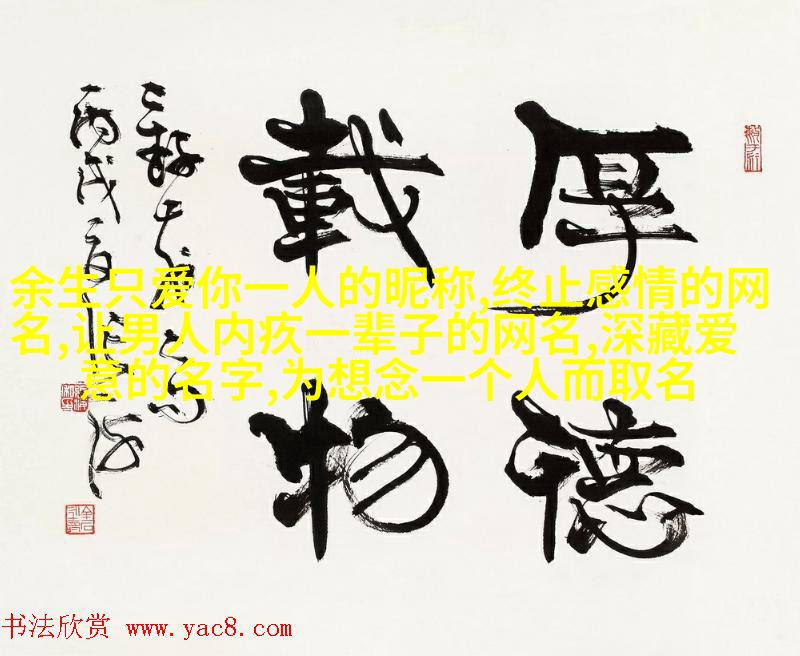 厚德
載物
余生只爱你一人的昵称,终止感情的网
名,让男人内疚一辈子的网名,深藏爱
意的名字,为想念一个人而取名
书法欣赏 www.yac8.com